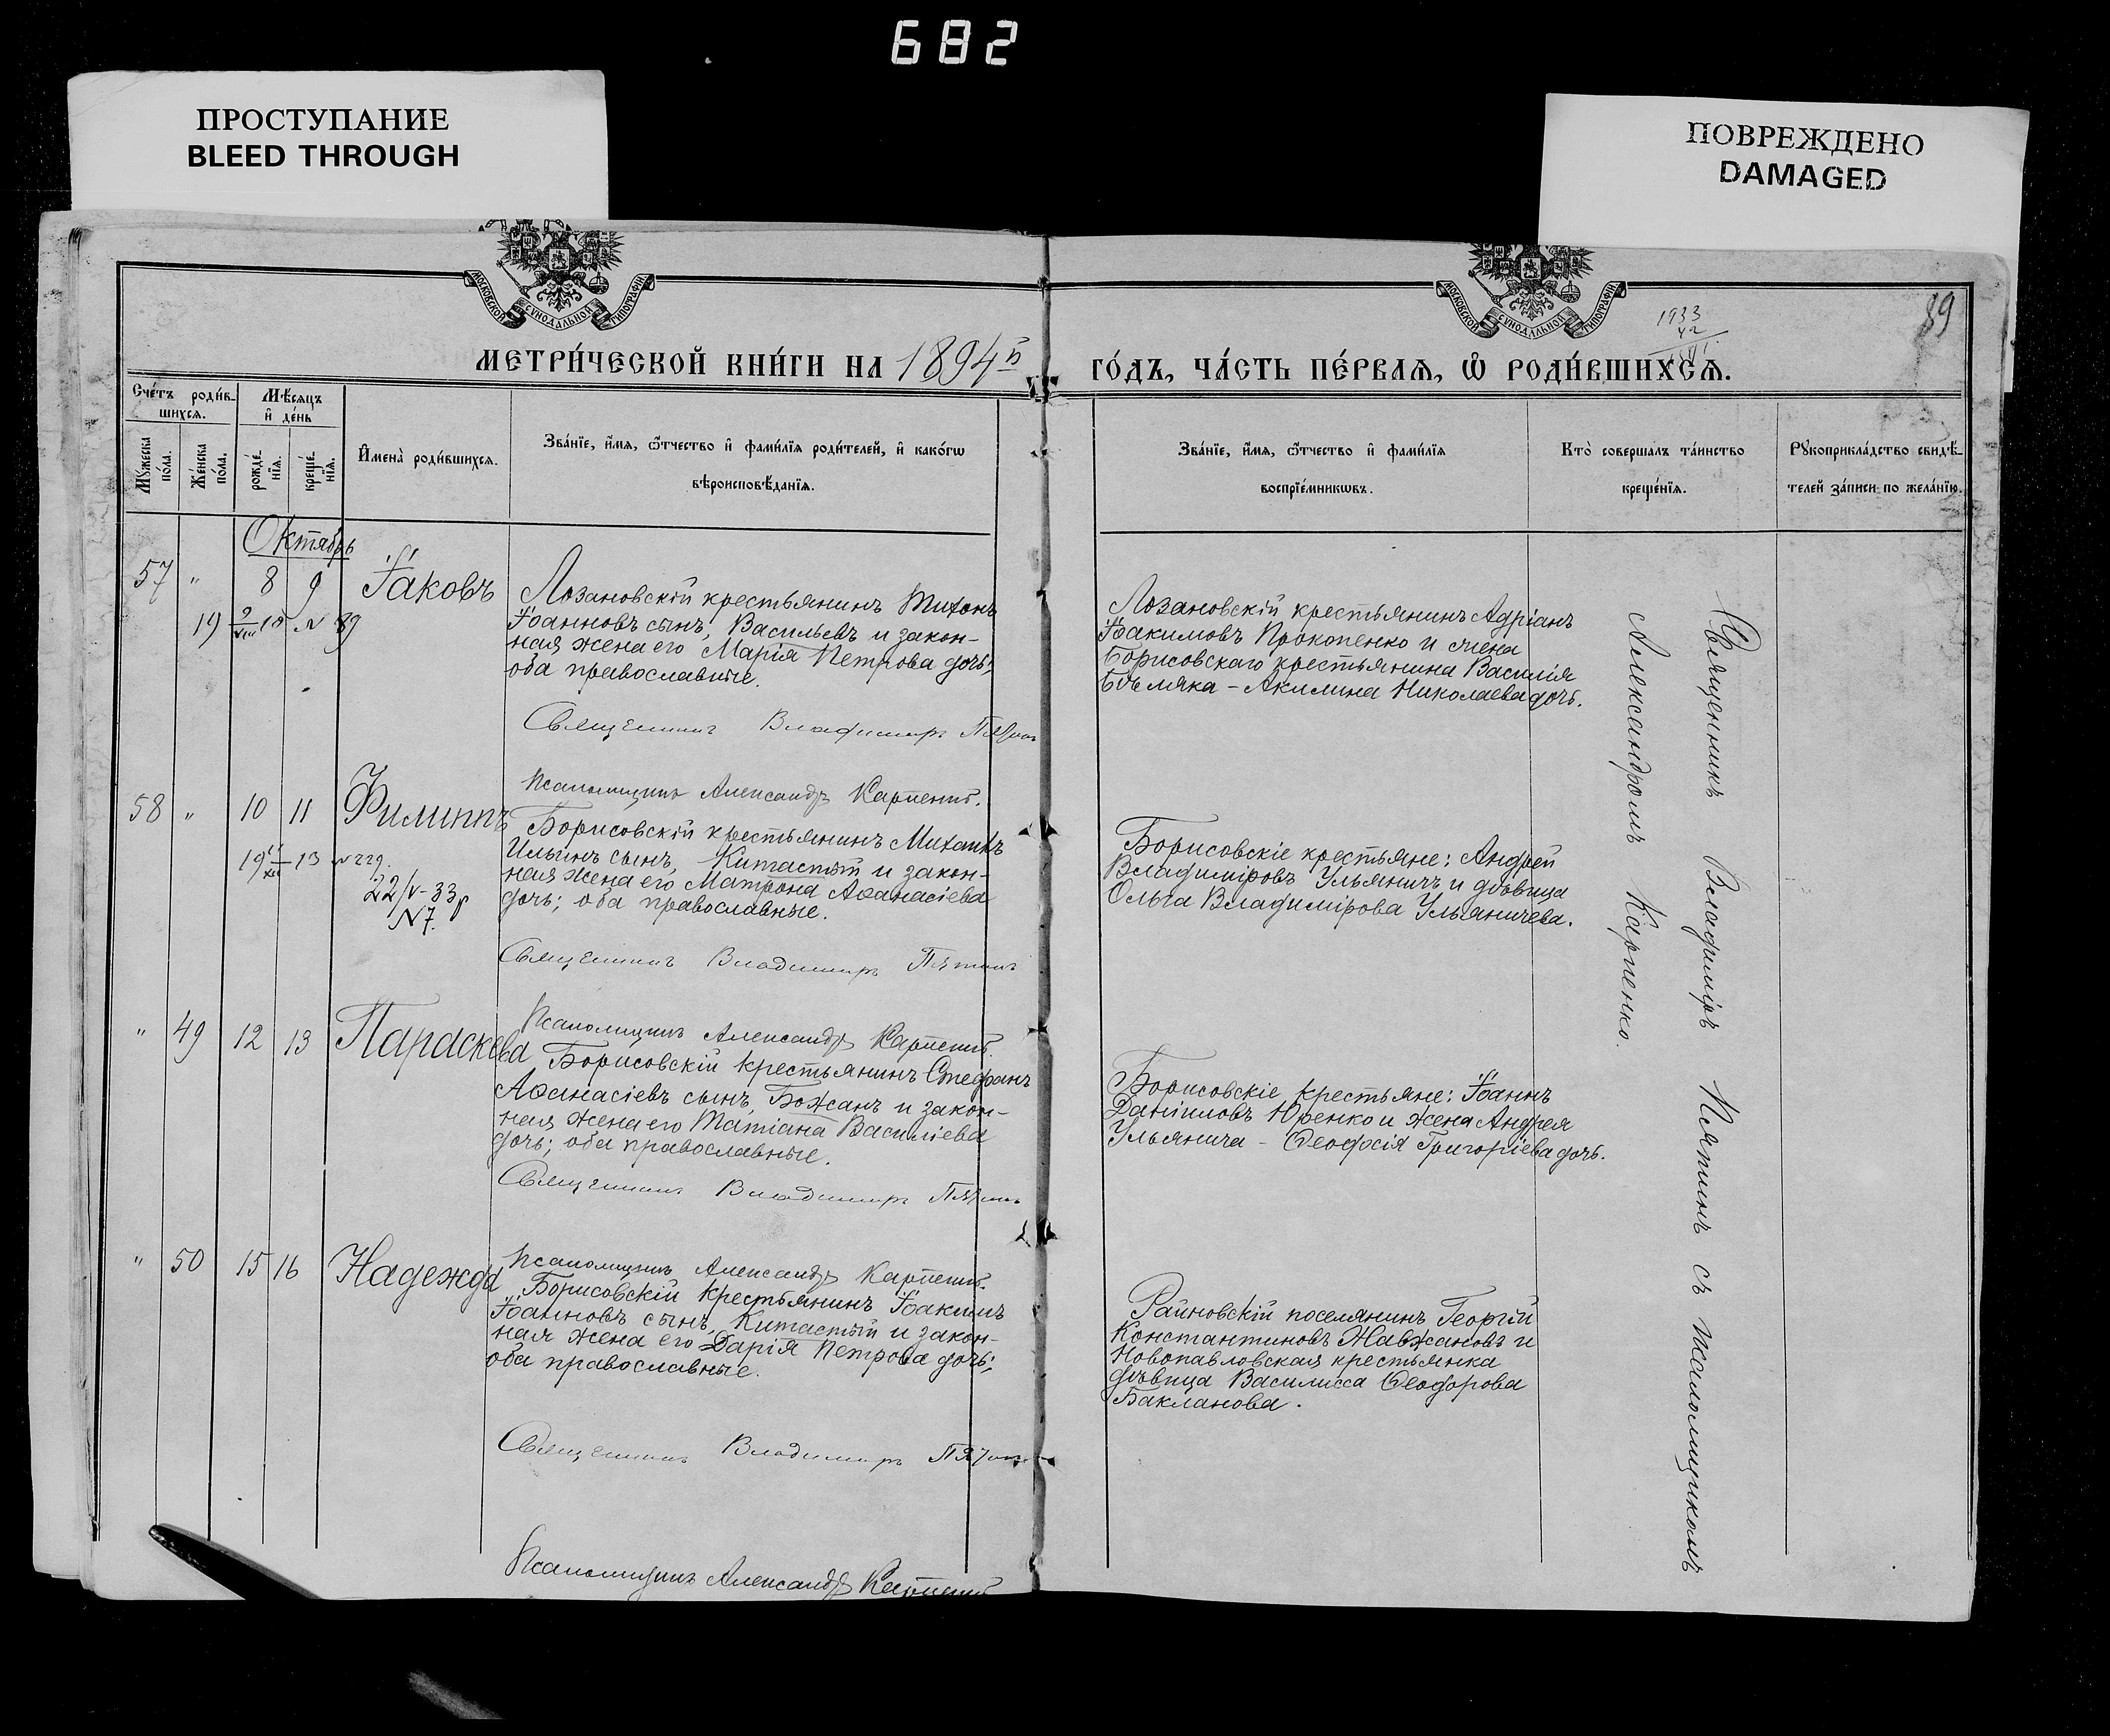 682
ПРОСТУПАНИЕ
BLEED THROUGH
ПОВРЕЖДЕНО
DAMAGED
МОСКОВСКОЙ СУНОДАЛЬНОЙ ТИПОГРАФІИ
МОСКОВСКОЙ СУНОДАЛЬНОЙ ТИПОГРАФІИ
1933
42
89
МЕТРИ́ЧЕСКОЙ КНИ́ГИ НА 1894й ГО́ДЪ, ЧА́СТЬ ПЕ́РВАѦ, Ѡ҆ РОДИ́ВШИХСѦ.
Сче́тъ роди́в-
шихсѧ.
Мѣ́сѧцъ
и҆ де́нь
Мꙋ́жеска
по́ла.
Же́нска
по́ла.
рожде́-
нїѧ.
креще́-
нїѧ.
И҆мена̀ роди́вшихсѧ.
Зва́нїе, и҆́мѧ, ѻ҆́тчество и҆ фами́лїѧ роди́телей, и҆ како́гѡ
вѣроисповѣ́данїѧ.
Зва́нїе, и҆́мѧ, ѻ҆́тчество и҆ фами́лїѧ
воспрїе́мникѡвъ.
Кто̀ соверша́лъ та́инство
креще́нїѧ.
Рꙋкоприкла́дство свидѣ́-
телей за́писи по жела́нїю.
Октябрь
57 " 8 9 Іаковъ
19 9/VIII 18 N 89
Лозановскій крестьянинъ Тихонъ
Іоанновъ сынъ, Васильевъ и закон-
ная жена его Марія Петрова дочь;
оба православные.
Священникъ Владимиръ Пятинъ
Псаломщикъ Александръ Карпенко.
Лозановскій крестьянинъ Адріанъ
Іоакимовъ Прокопенко и жена
Борисовскаго крестьянина Василія
Бѣляка - Акилина Николаева дочь.
58 " 10 11 Филиппъ
XII 13 N 229.
22/V-33 г
N 7.
Борисовскій крестьянинъ Михаилъ
Ильинъ сынъ, Китастый и закон-
ная жена его Матрона Аѳанасіева
дочь; оба православные.
Священникъ Владимиръ Пятинъ
Псаломщикъ Александръ Карпенко.
Борисовскіе крестьяне: Андрей
Владиміровъ Ульяничъ и дѣвица
Ольга Владимірова Ульяничева.
" 49 12 13 Параскева
Борисовскій крестьянинъ Стефанъ
Аѳанасіевъ сынъ, Божанъ и закон-
ная жена его Татіана Василіева
дочь; оба православные.
Священникъ Владимиръ Пятинъ
Псаломщикъ Александръ Карпенко.
Борисовскіе крестьяне: Іоаннъ
Даніиловъ Юренко и жена Андрея
Ульянича - Ѳеодосія Григоріева дочь.
" 50 15 16 Надежда
Борисовскій крестьянинъ Іоакимъ
Іоанновъ сынъ, Китастый и закон-
ная жена его Дарія Петрова дочь;
оба православные.
Священникъ Владимиръ Пятинъ
Псаломщикъ Александръ Карпенко
Раиновскій поселянинъ Георгій
Константиновъ Жавжановъ и
Новопавловская крестьянка
дѣвица Василисса Ѳеодорова
Бакланова.
Священникъ Владиміръ Пятинъ съ псаломщикомъ
Александромъ Карпенко.